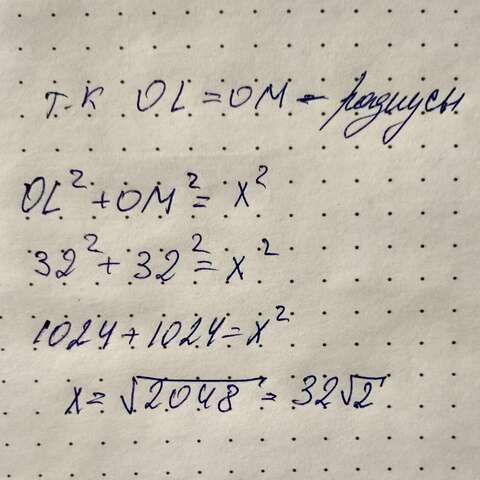 т.к OL = OM - радиусы
OL² + OM² = x²
32² + 32² = x²
1024 + 1024 = x²
x = √2048 = 32√2